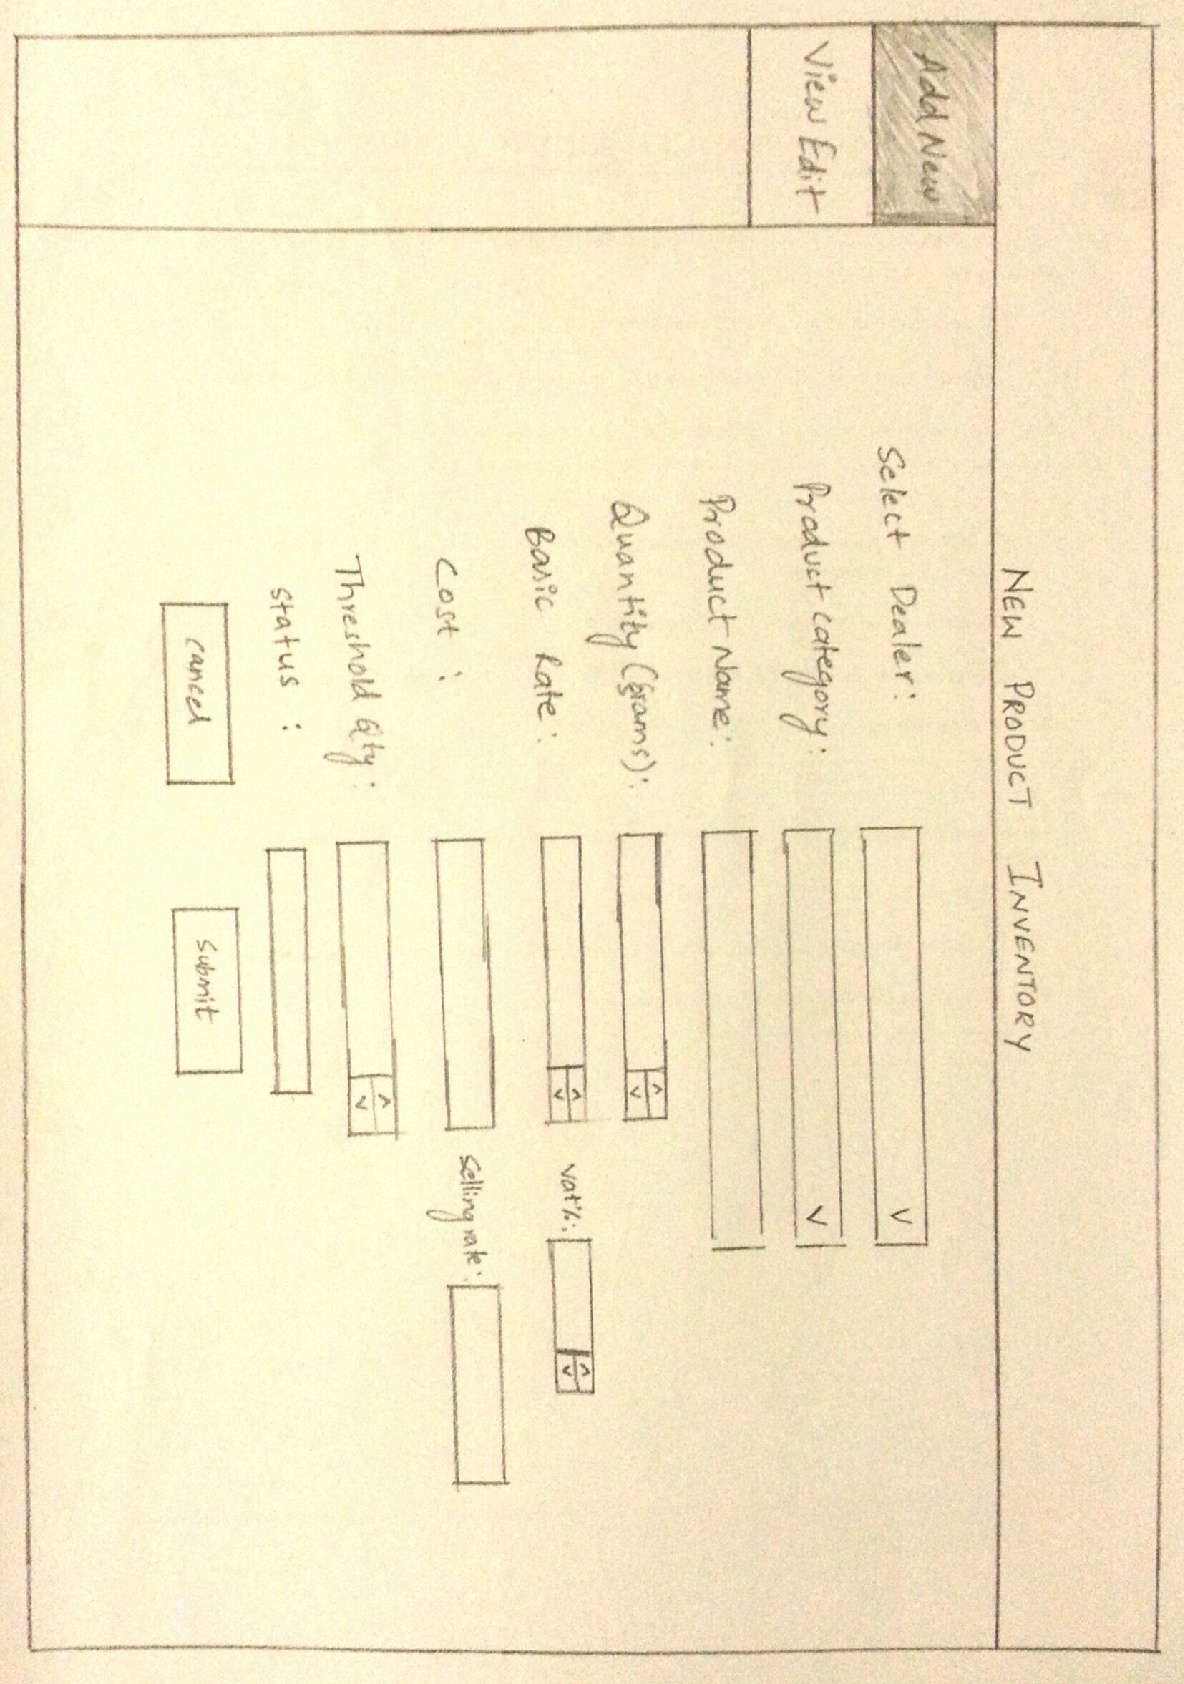 NEW PRODUCT INVENTORY
Add New
View Edit
Select Dealer:
Product category:
Product Name:
Quantity (grams):
Basic Rate: vat%:
Cost: Selling rate:
Threshold Qty:
Status:
cancel Submit